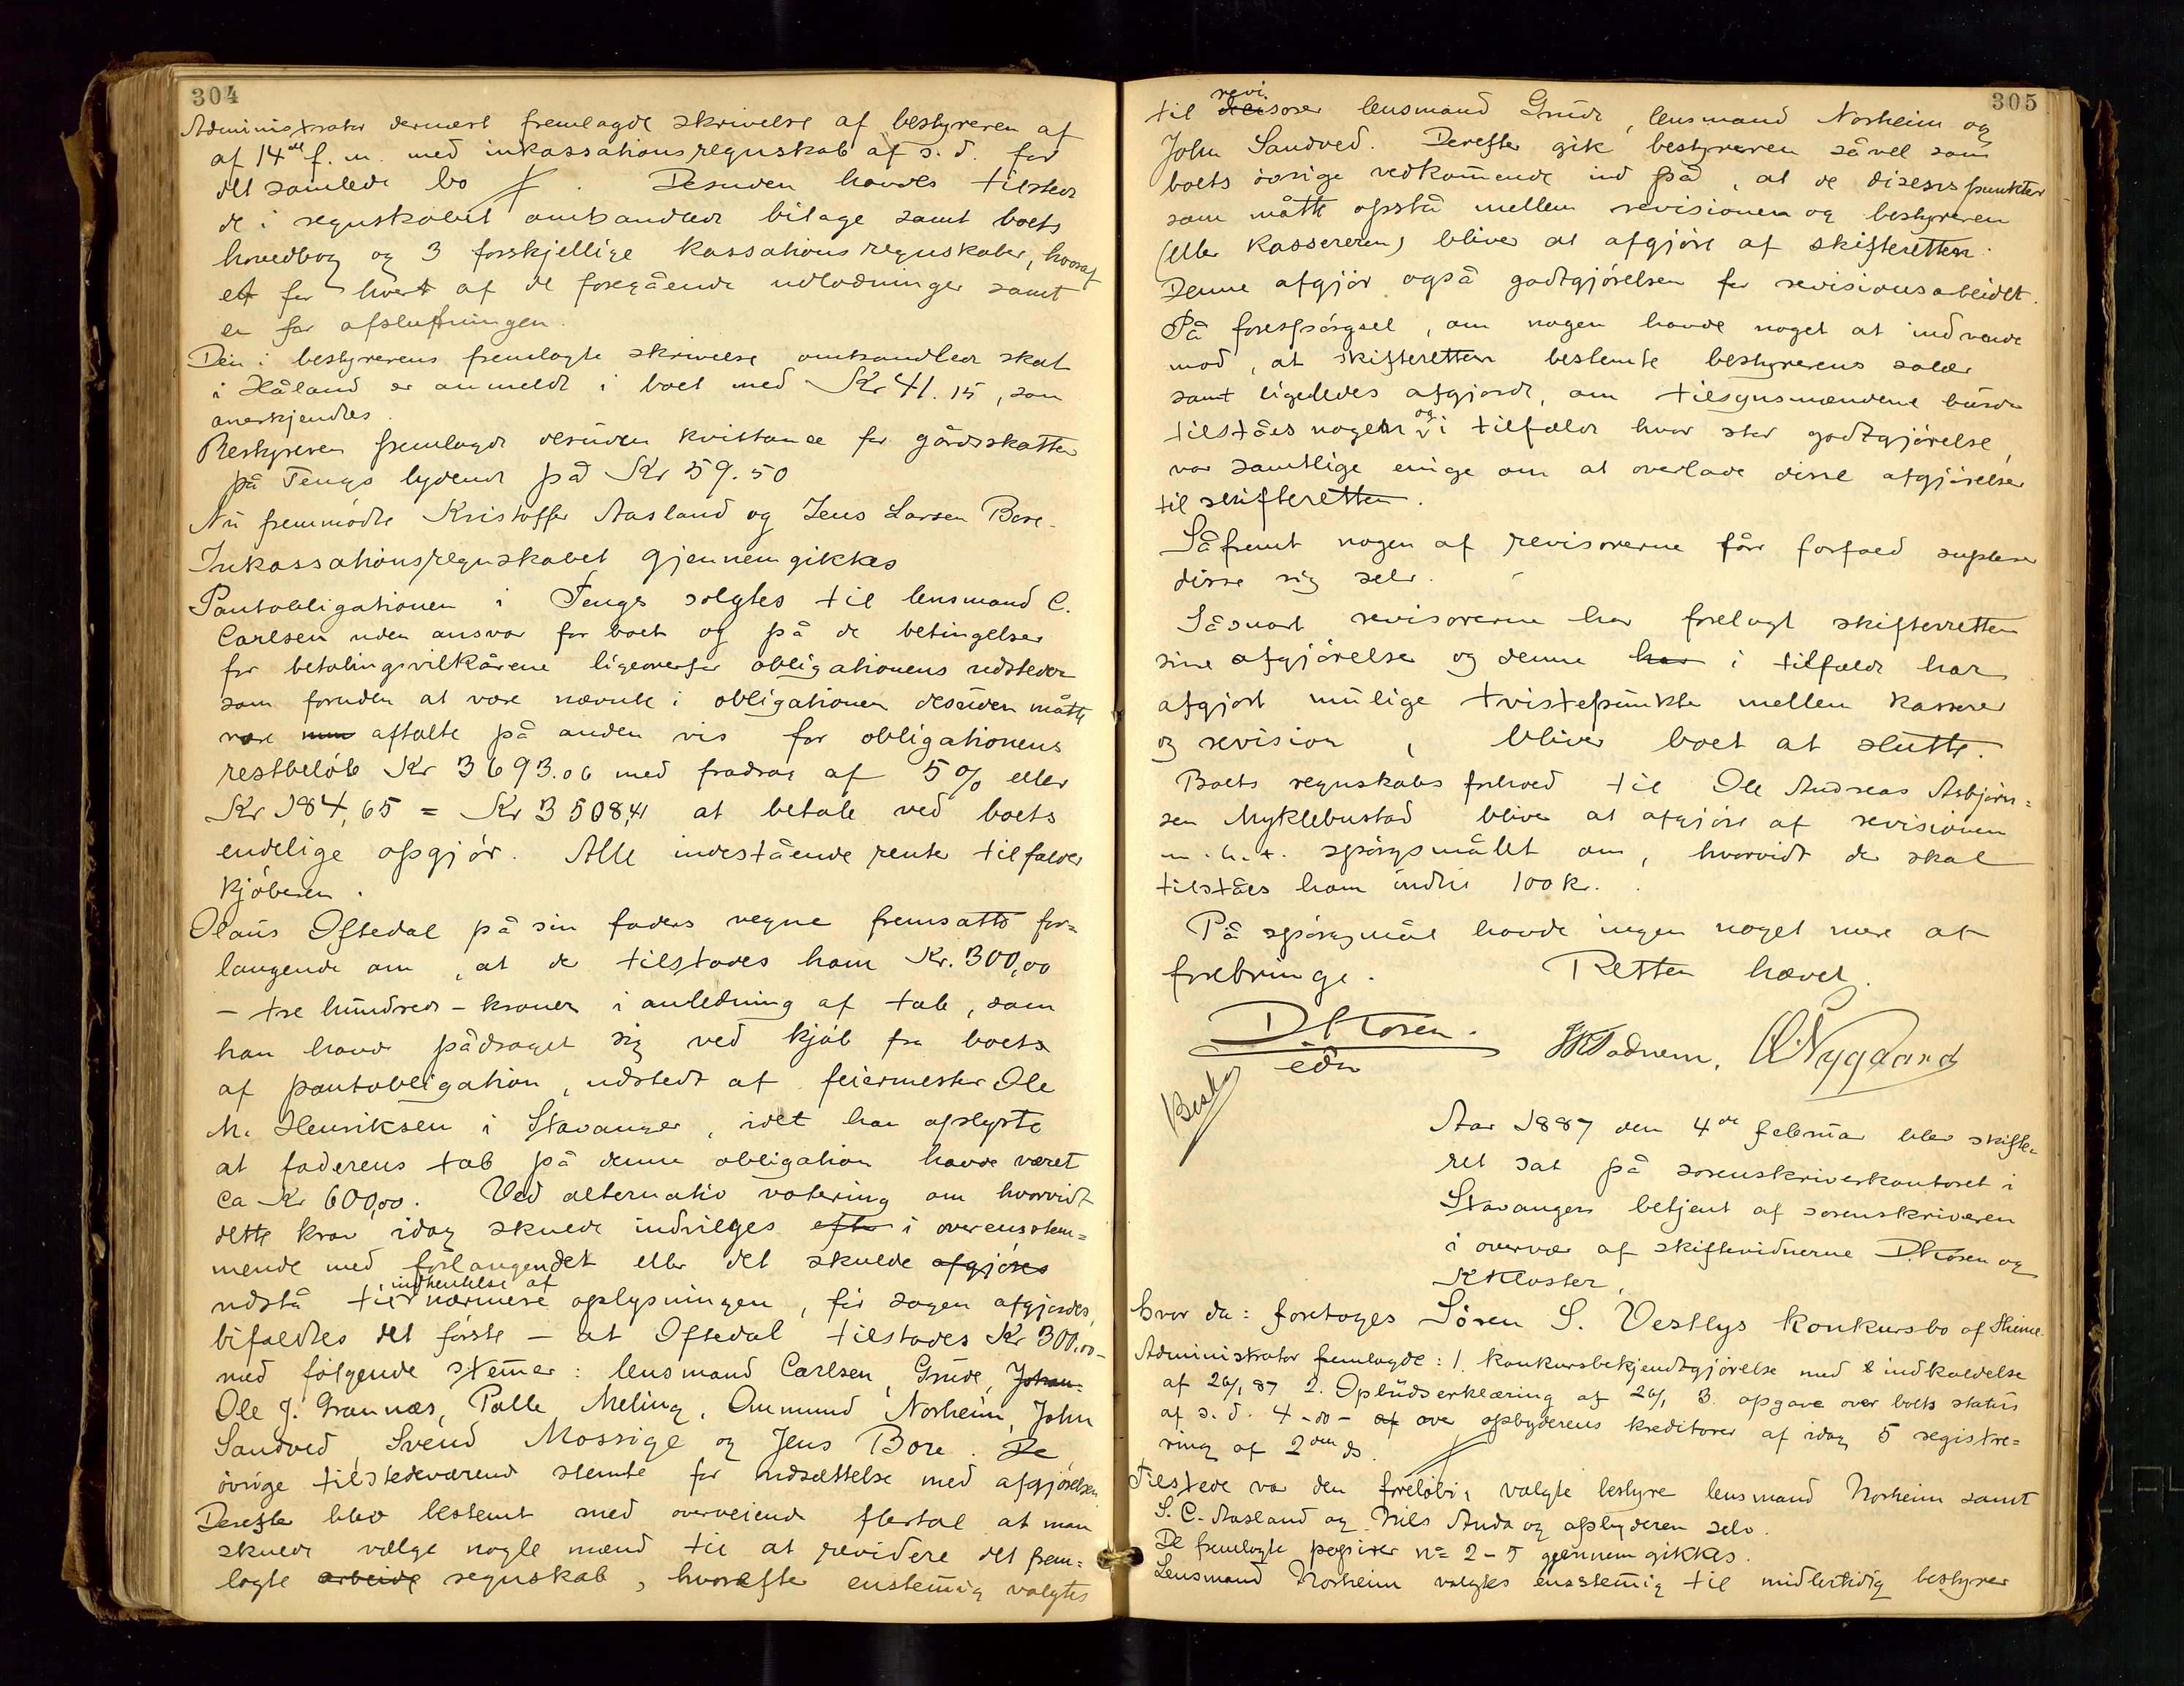 304
Administrator dernæst fremlagde skrivelse af bestyreren af
af 14de f. m. med inkassationsregnskab af s. d. for
det samlede bo. Desuden havdes tilstede
de i regnskabet omhandlede bilage samt boets
hovedbog og 3 forskjellige kassationsregnskaber, hvoraf
et for hvert af de foregående udlodninger samt
en for afslutningen.
Den i bestyrerens fremlagte skrivelse omhandlede skat
i Håland er anmeldt i boet med Kr 41.15, som
anerkjendtes.
Bestyreren fremlagde desuden kvittance for gårdsskatten
på Tengs lydende på Kr 59.50
Nu fremmødte Kristoffer Aasland og Jens Larsen Bore.
Inkassationsregnskabet gjennemgikkes
Pantobligationen i Tengs solgtes til lensmand C.
Carlsen uden ansvar for boet og på de betingelser
for betalingsvilkårene ligeoverfor obligationens udsteder
som foruden at være nævnte i obligationen desuden måtte
være aftalte på anden vis for obligationens
restbeløb Kr 3693.06 med fradrag af 5% eller
Kr 184,65 = Kr 3508,41 at betale ved boets
endelige opgjør. Alle indestående renter tilfalder
kjøberen.
Olaus Oftedal på sin faders vegne fremsatte for=
langende om, at der tilstodes ham Kr. 300,00
- tre hundrede - kroner i anledning af tab, som
han havde pådraget sig ved kjøb fra boets
af pantobligation, udstedt af feiermester Ole
M. Henriksen i Stavanger, idet han oplyste
at faderens tab på denne obligation havde været
ca Kr 600,00. Ved alternativ votering om hvorvidt
dette krav idag skulde indvilges efter i overensstem=
mende med forlangendet eller det skulde afgjøres
udstå til indhentelse af nærmere oplysningen, før sagen afgjordes,
bifaldtes det første - at Oftedal tilstodes Kr 300,00 -
med følgende stemer: lensmand Carlsen, Grude, Johan
Ole J. Grannæs, Palle Meling, Ommund Norheim, John
Sandved, Svend Mossige og Jens Bore. De
øvrige tilstedeværende stemte for udsættelse med afgjørelsen.
Derefter blev bestemt med overveiende flertal at man
skulde vælge nogle mænd til at revidere det frem=
lagte arbeide regnskab, hvorefter enstemig valgtes
305
til revisorer lensmand Grude, lensmand Norheim og
John Sandved. Derefter gik bestyreren såvel som
boets øvrige vedkomende ind på, at de disenspunkter
som måtte opstå mellem revisionen og bestyreren
(eller Kassereren) bliver at afgjøre af skifteretten.
Denne afgjør også godtgjørelsen for revisionsarbeidet.
På forespørgsel, om nogen havde noget at indvende
mod, at skifteretten bestemte bestyrerens salær
samt ligeledes afgjorde, om tilsynsmændene burde
tilståes nogen og i tilfælde hvor stor godtgjørelse,
var samtlige enige om at overlade disse afgjørelser
til skifteretten.
Såfremt nogen af revisorerne får forfald suplerer
disse sig selv.
Såsnart revisorerne har forelagt skifterretten
sine afgjørelser og denne har i tilfælde har
afgjort mulige tvistepunkter mellem kasserer
og revision, bliver boet at slutte.
Boets regnskabs forhold til Ole Andreas Asbjørn=
sen Myklebustad bliver at afgjøre af revisionen
m. h. t. spørgsmålet om, hvorvidt der skal
tilståes ham indtil 100 kr.
På spørgsmål havde ingen noget mere at
forebringe. Retten hævet.
D Kosen
edv
Tadnem, O. Nygaard
Besky
Aar 1887 den 4de februar blev skifte=
ret sat på sorenskriverkontoret i
Stavanger betjent af sorenskriveren
i overvær af skiftevidnerne D. Kosen og
K Kloster,
hvor da: foretoges Søren S. Vestlys konkursbo af Thime.
Administrator fremlagde: 1. konkursbekjendtgjørelse med indkaldelse
af 26/1 87 2. Opbudserklæring af 26/1 3. opgave over boets status
af s. d. 4 -do- af over opbyderens kreditorer af idag 5 registre=
ring af 2den ds.
Tilstede var den foreløbig valgte bestyrer lensmand Norheim samt
S. C. Aasland og Nils Anda og opbyderen selv.
De fremlagte papirer no 2-5 gjennemgikkes.
Lensmand Norheim valgtes ensstemig til midlertidig bestyrer